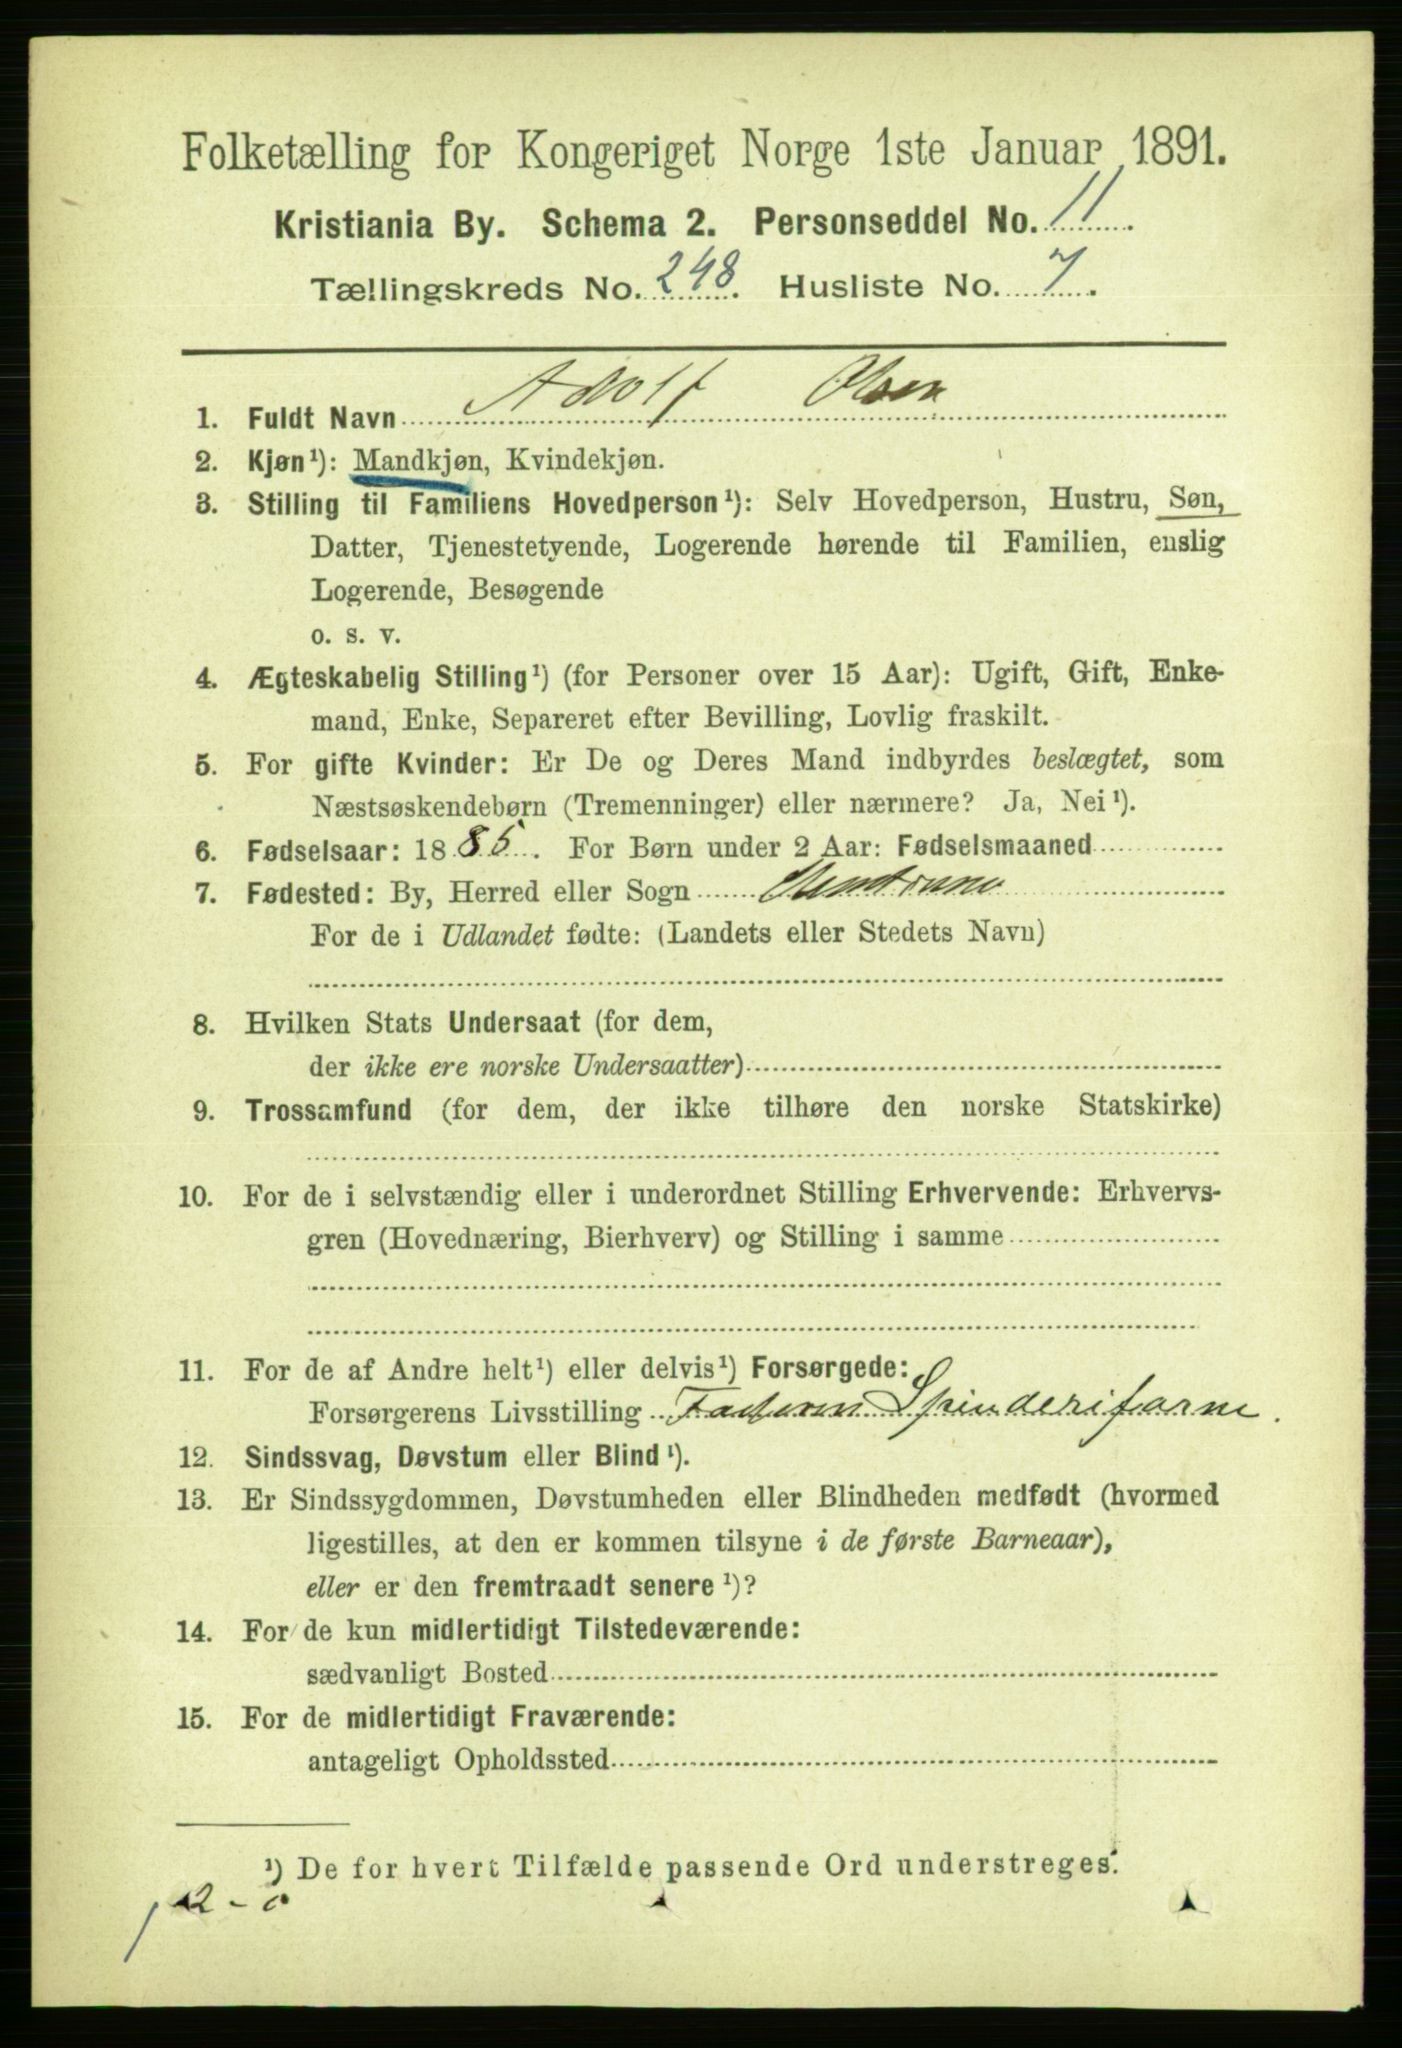 Folketælling for Kongeriget Norge 1ste Januar 1891.
Kristiania By. Schema 2. Personseddel No. 11.
Tællingskreds No. 248. Husliste No. 7.
1. Fuldt Navn Adolf Olsen
2. Kjøn¹): Mandkjøn, Kvindekjøn.
3. Stilling til Familiens Hovedperson¹): Selv Hovedperson, Hustru, Søn,
Datter, Tjenestetyende, Logerende hørende til Familien, enslig
Logerende, Besøgende
o. s. v.
4. Ægteskabelig Stilling¹) (for Personer over 15 Aar): Ugift, Gift, Enke-
mand, Enke, Separeret efter Bevilling, Lovlig fraskilt.
5. For gifte Kvinder: Er De og Deres Mand indbyrdes beslægtet, som
Næstsøskendebørn (Tremenninger) eller nærmere? Ja, Nei¹).
6. Fødselsaar: 1885. For Børn under 2 Aar: Fødselsmaaned
7. Fødested: By, Herred eller Sogn
For de i Udlandet fødte: (Landets eller Stedets Navn)
8. Hvilken Stats Undersaat (for dem,
der ikke ere norske Undersaatter)
9. Trossamfund (for dem, der ikke tilhøre den norske Statskirke)
10. For de i selvstændig eller i underordnet Stilling Erhvervende: Erhvervs-
gren (Hovednæring, Bierhverv) og Stilling i samme
11. For de af Andre helt¹) eller delvis¹) Forsørgede:
Forsørgerens Livsstilling Faderen Spinderiform.
12. Sindssvag, Døvstum eller Blind¹).
13. Er Sindssygdommen, Døvstumheden eller Blindheden medfødt (hvormed
ligestilles, at den er kommen tilsyne i de første Barneaar),
eller er den fremtraadt senere¹)?
14. For de kun midlertidigt Tilstedeværende:
sædvanligt Bosted
15. For de midlertidigt Fraværende:
antageligt Opholdssted
¹) De for hvert Tilfælde passende Ord understreges.